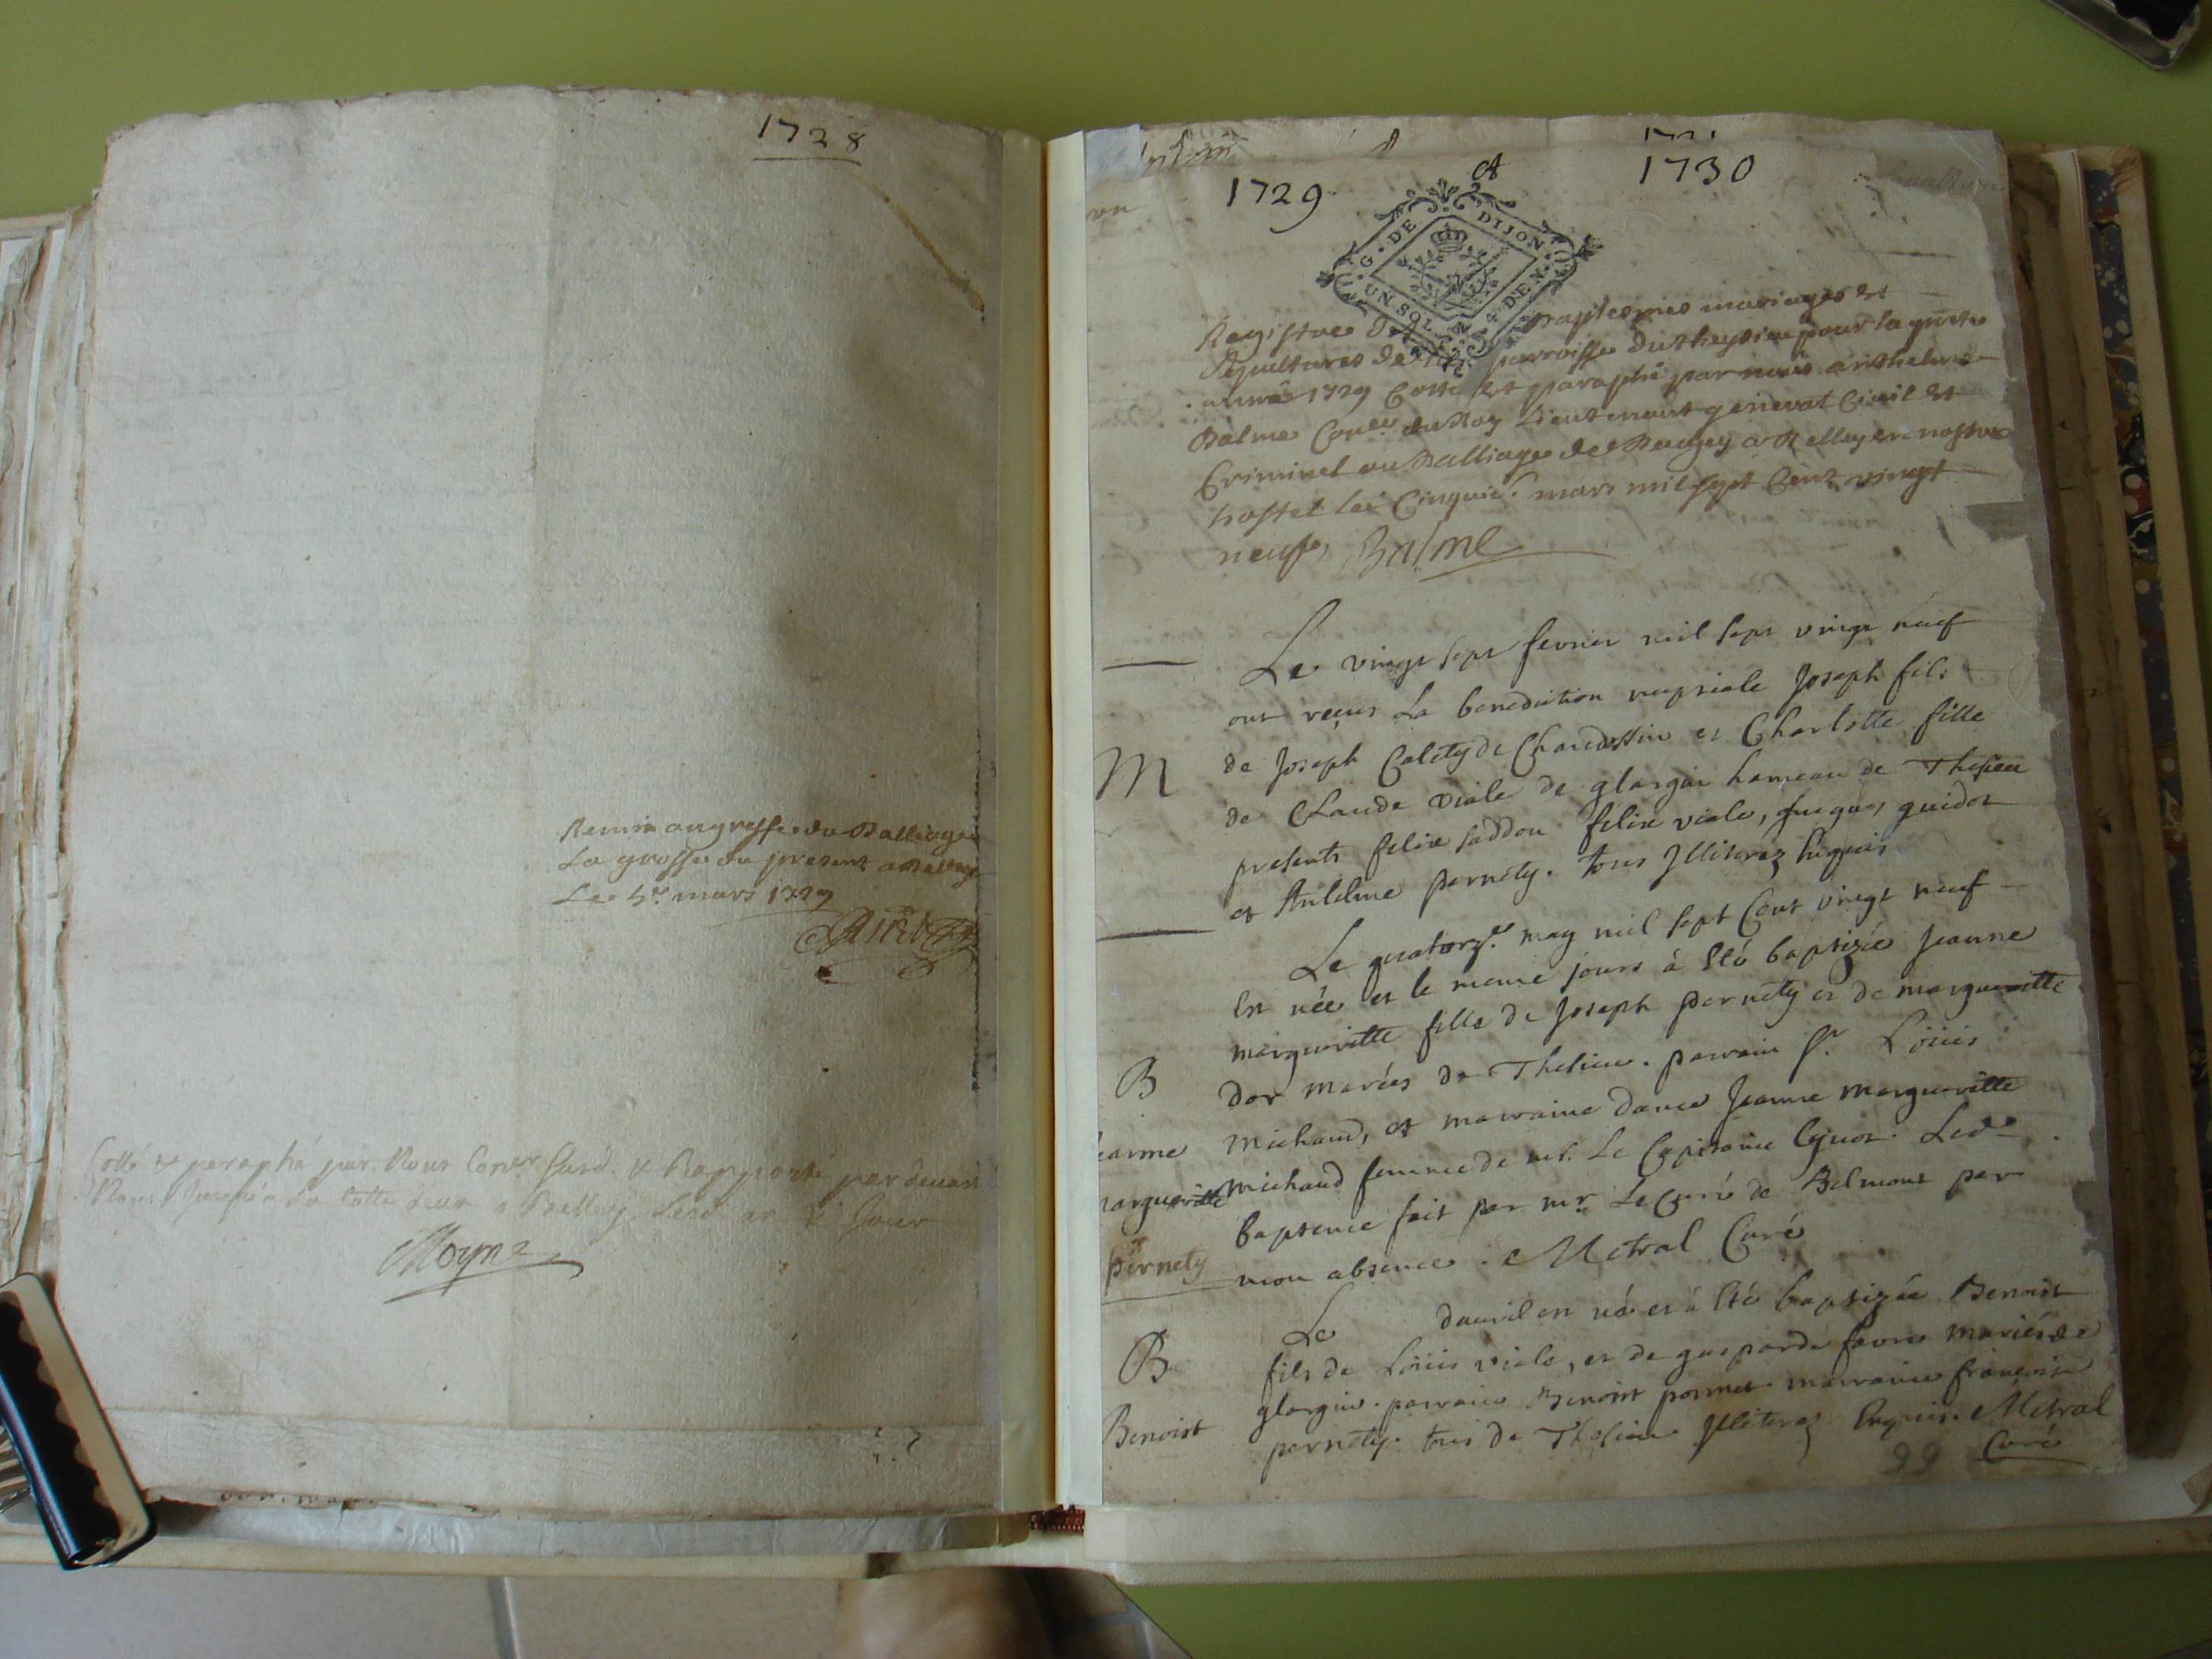 1728
Remis au greffe du Balliage
La grosse du present a Belley
Le 5e mars 1729
Cotté & peraphé par Nous Coner & Rapporté par devant
Nous a la Cotte deux a Belley Lesd an & Jour
Moyne
1729
1730
G. DE DIJON
UN SOL 4 DEN.
Registre des Baptesmes mariages et
Sepultures de la parroisse du Theysieu pour la pnte
année 1729 Cotté et paraphé par nous anthelme
Balme Coner du Roy Lieutenant general Civil et
Criminel au Balliage de Beugey a Belley en nostre
hostel le Cinquie. mars mil sept Cent vingt
neuf, Balme
Le vingt sept fevrier mil sept vingt neuf
ont reçus La benediction nupsiale Joseph fils
M
de Joseph Calety de et Charlotte fille
de Claude viale de glargin hameau de Thesieu
presents felix faddou felix viale, guidot
et Antelme pernety. tous Illiterez Enquis
Le quatorze. may mil sept Cent vingt neuf
Est née et le meme jours à Eté baptizée Jeanne
margueritte fille de Joseph pernety et de margueritte
B
Dor mariés de Thesieu. parrain Sr. Loüis
Jeanne
michaud, et marraine dame Jeanne margueritte
margueritte
michaud femme de mr. Le Capitaine Cyvot. Led.
bapteme fait par mr. Le Curé de Belmont par
pernety
mon absence. Metral Curé
B
Le davril est né et à Eté baptizée Benoist
fils de Loüis viale, et de gasparde favre mariés de
glargin. parrain Benoist marraine françoise
Benoist
pernety. tous de Thesieu Illiterez Enquis. Metral
Curé
99